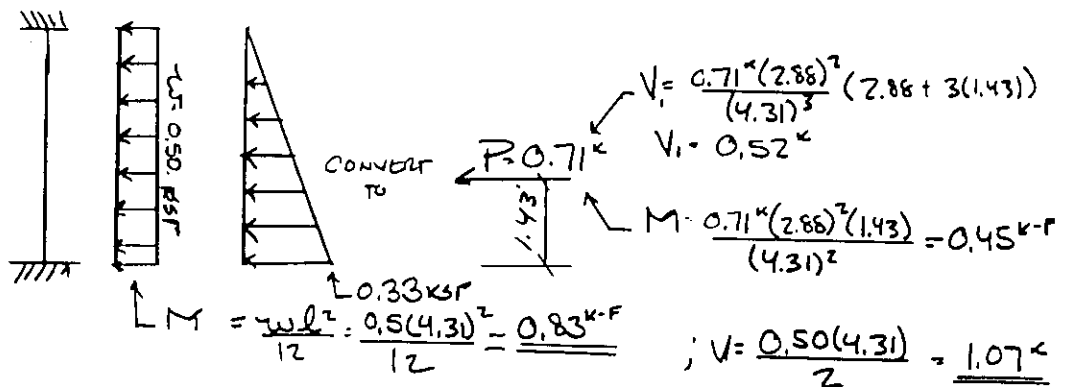 w= 0.50 KSF
CONVERT
TO
P= 0.71ᴷ
1.43'
V₁= 0.71ᴷ(2.88)² / (4.31)³ (2.88 + 3(1.43))
V₁= 0.52ᴷ
M= 0.71ᴷ(2.88)²(1.43) / (4.31)² = 0.45ᴷ⁻ᶠ
0.33 KSF
M = wl² / 12 = 0.5(4.31)² / 12 = 0.83ᴷ⁻ᶠ
; V= 0.50(4.31) / 2 = 1.07ᴷ